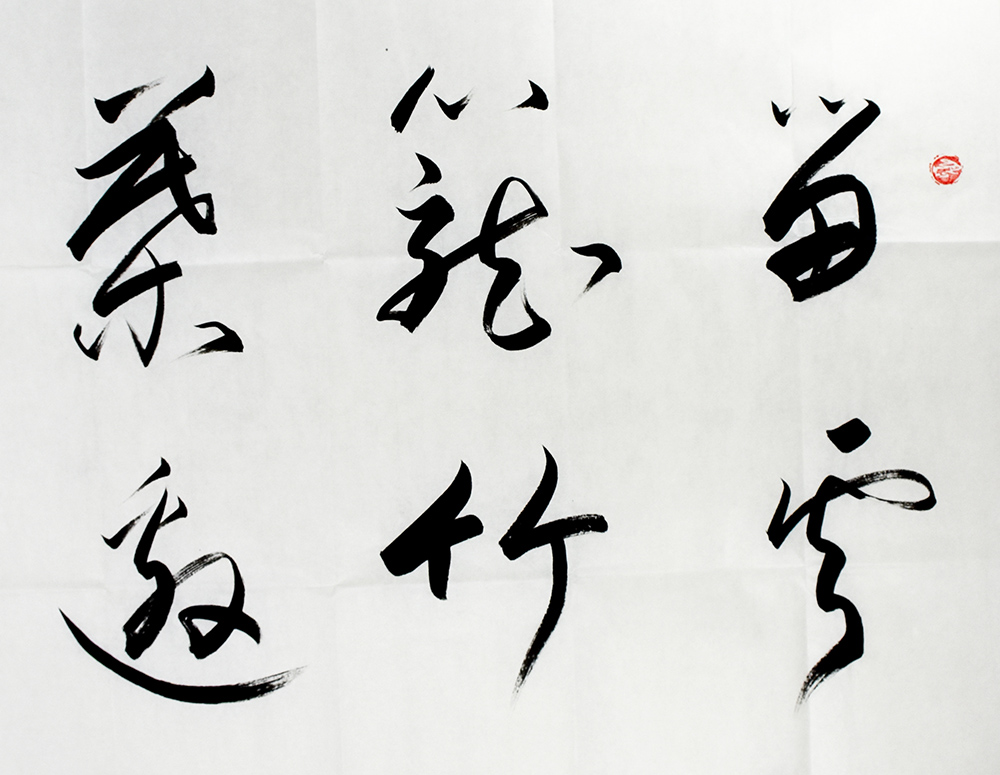 留雲
籠竹
葉邀